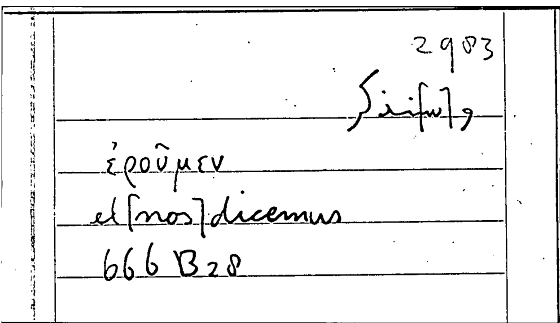 2983
ἐροῦμεν
et [nos] dicemus
666 B28